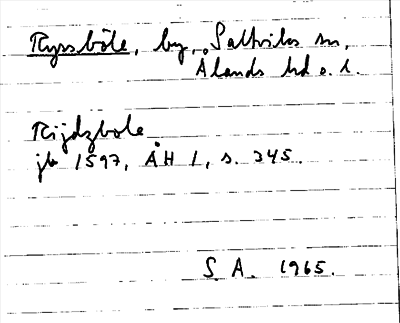 Ryssböle, by, Saltviks sn,
Ålands hd o. l.
Rijdzbole
jb 1597, ÅH 1, s. 345.
S. A. 1965.